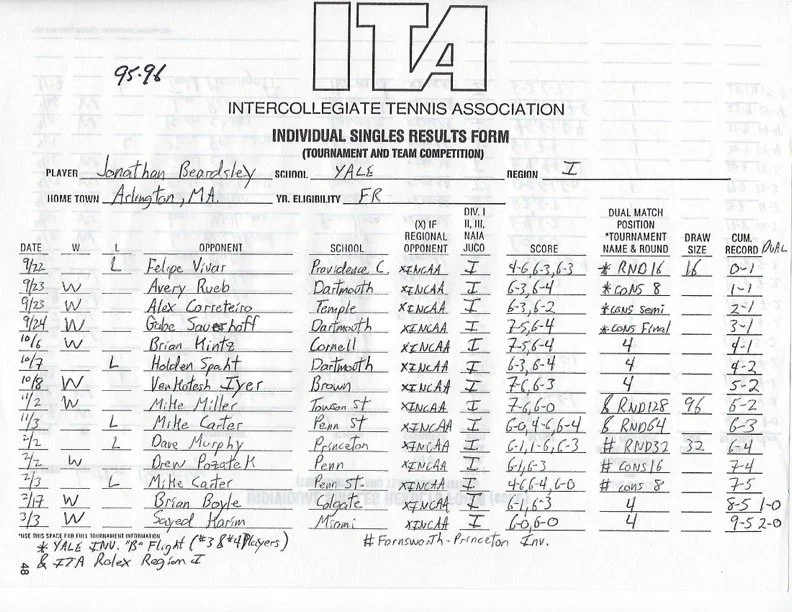 ITA
95-96
INTERCOLLEGIATE TENNIS ASSOCIATION
INDIVIDUAL SINGLES RESULTS FORM
(TOURNAMENT AND TEAM COMPETITION)
PLAYER Jonathan Beardsley SCHOOL YALE REGION I
HOME TOWN Arlington, MA. YR. ELIGIBILITY FR
DATE W L OPPONENT SCHOOL (X) IF REGIONAL OPPONENT DIV. I II, III, NAIA JUCO SCORE DUAL MATCH POSITION *TOURNAMENT NAME & ROUND DRAW SIZE CUM. RECORD DUAL
9/22 L Felipe Vivar Providence C. XINCAA I 4-6, 6-3, 6-3 * RND16 16 0-1
9/23 W Avery Rueb Dartmouth XINCAA I 6-3, 6-4 * cons 8 1-1
9/23 W Alex Correteiro Temple XINCAA I 6-3, 6-2 * cons semi 2-1
9/24 W Gabe Sauerhoff Dartmouth XINCAA I 7-5, 6-4 * cons Final 3-1
10/6 W Brian Mintz Cornell XINCAA I 7-5, 6-4 4 4-1
10/7 L Holden Spaht Dartmouth XINCAA I 6-3, 6-4 4 4-2
10/8 W Venkatesh Iyer Brown XINCAA I 7-6, 6-3 4 5-2
11/2 W Mike Miller Towson St XINCAA I 7-6, 6-0 & RND128 96 6-2
11/3 L Mike Carter Penn St XINCAA I 6-0, 4-6, 6-4 & RND64 6-3
2/2 L Dave Murphy Princeton XINCAA I 6-1, 1-6, 6-3 # RND32 32 6-4
2/2 W Drew Pozatek Penn XINCAA I 6-1, 6-3 # cons 16 7-4
2/3 L Mike Carter Penn St. XINCAA I 4-6, 6-4, 6-0 # cons 8 7-5
2/17 W Brian Boyle Colgate XINCAA I 6-1, 6-3 4 8-5 1-0
3/3 W Sayed Karim Miami XINCAA I 6-0, 6-0 4 9-5 2-0
*USE THIS SPACE FOR FULL TOURNAMENT INFORMATION
* YALE INV. "B" Flight (#3 & #4 Players) # Farnsworth-Princeton Inv.
& ITA Rolex Region I
48